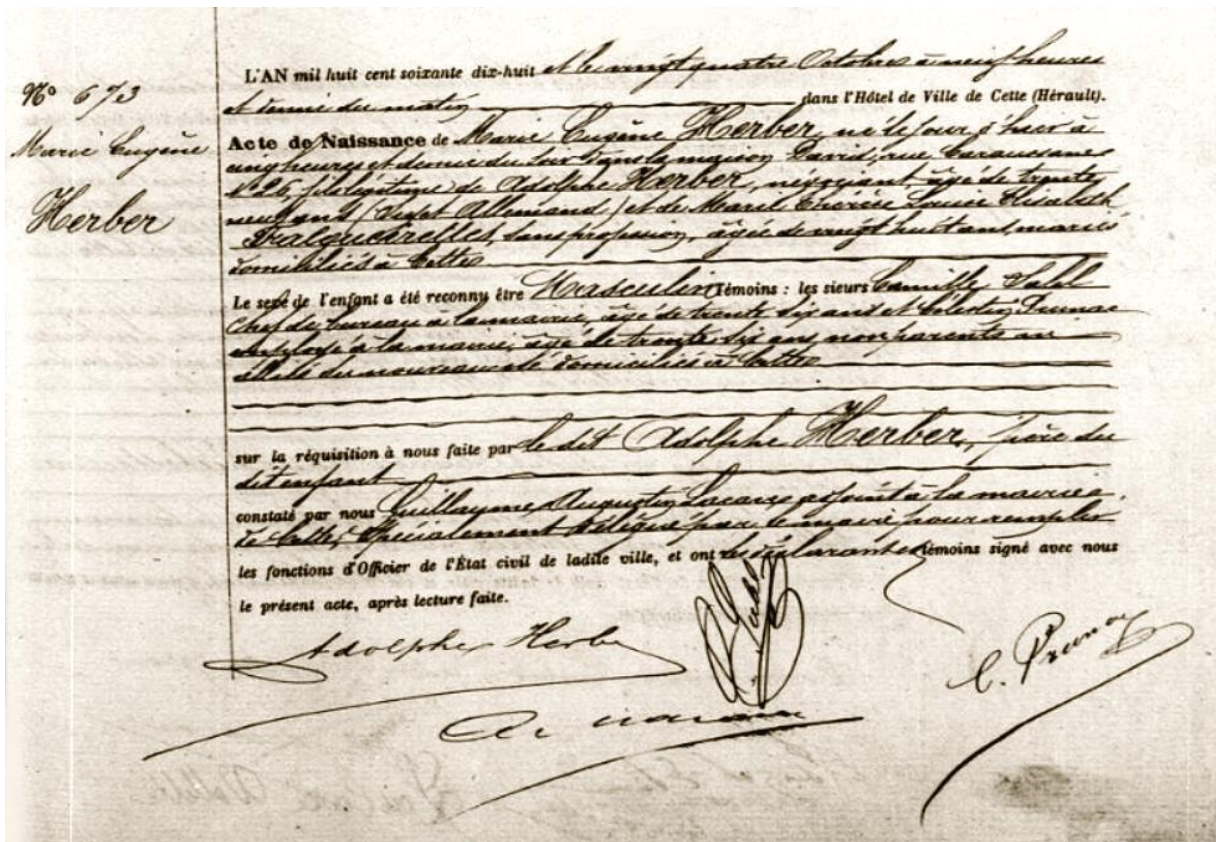 N° 673
Marie Eugène
Herber
L'AN mil huit cent soixante dix-huit et le vingt quatre Octobre à neuf heures
et demie du matin dans l'Hôtel de Ville de Cette (Hérault).
Acte de Naissance de Marie Eugène Herber, né le jour d'hier à
cinq heures et demie du soir dans la maison David, rue Caraussane
N° 26, fils légitime de Adolphe Herber, négociant, âgé de trente
neuf ans (Sujet Allemand) et de Marie Louise Elisabeth
sans profession, âgée de vingt huit ans, mariés
domiciliés à Cette
Le sexe de l'enfant a été reconnu être Masculin Témoins : les sieurs Camille
chef de bureau à la mairie, âgé de trente six ans et Célestin Prunac
employé à la mairie, âgé de trente six ans, non parents ni
alliés du nouveau né domiciliés à Cette
sur la réquisition à nous faite par le dit Adolphe Herber, père du
dit enfant
constaté par nous Guillaume Augustin adjoint à la mairie
de Cette, spécialement délégué par le maire pour remplir
les fonctions d'Officier de l'État civil de ladite ville, et ont les déclarant et témoins signé avec nous
le présent acte, après lecture faite.
Adolphe Herber
C. Prunac